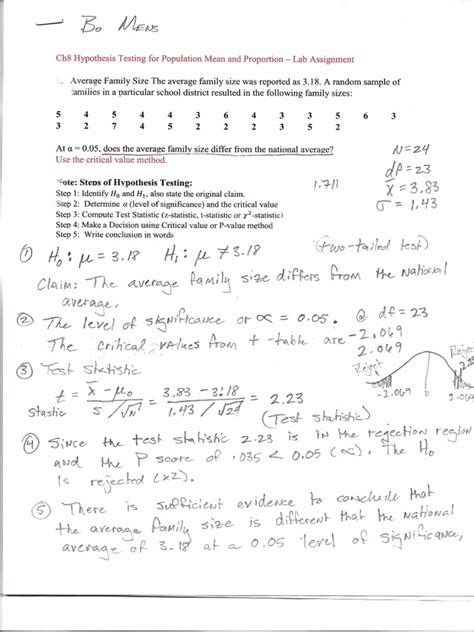 — Bo Mens
Ch8 Hypothesis Testing for Population Mean and Proportion – Lab Assignment
Average Family Size The average family size was reported as 3.18. A random sample of
families in a particular school district resulted in the following family sizes:
5 4 5 4 4 3 6 4 3 3 5 6 3
3 2 7 4 5 2 2 2 3 5 2
At α = 0.05, does the average family size differ from the national average?
Use the critical value method.
N = 24
df = 23
x̄ = 3.83
σ = 1.43
1.711
Note: Steps of Hypothesis Testing:
Step 1: Identify H0 and H1, also state the original claim.
Step 2: Determine α (level of significance) and the critical value
Step 3: Compute Test Statistic (z-statistic, t-statistic or χ²-statistic)
Step 4: Make a Decision using Critical value or P-value method
Step 5: Write conclusion in words
① H₀: μ = 3.18 H₁: μ ≠ 3.18 (two-tailed test)
Claim: The average family size differs from the National
average.
② The level of significance or α = 0.05. @ df = 23
The critical values from t-table are -2.069
2.069
Reject Reject
-2.069 0 2.069
③ Test Statistic
t = x̄ - μ₀ / s/√n = 3.83 - 3.18 / 1.43/√24 = 2.23
Stastic (Test statistic)
④ Since the test statistic 2.23 is in the rejection region
and the P score of .035 < 0.05 (α). The H₀
Is rejected (x2).
⑤ There is sufficient evidence to conclude that
the average family size is different that the national
average of 3.18 at a 0.05 level of significance,